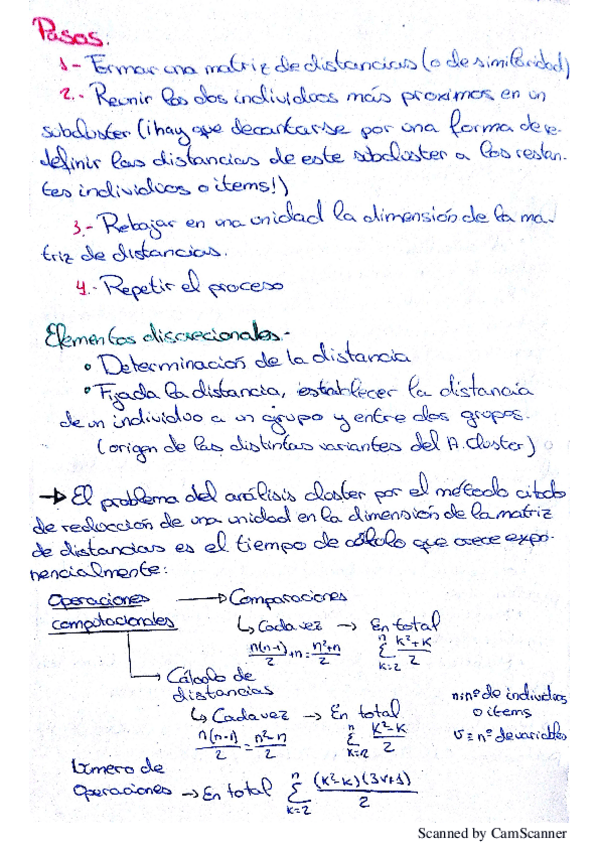 Pasos.
1.- Formar una matriz de distancias (o de similaridad)
2.- Reunir los dos individuos más proximos en un
subcluster (¡hay que decantarse por una forma de re-
definir las distancias de este subcluster a los restan-
tes individuos o items!)
3.- Rebajar en una unidad la dimensión de la ma-
triz de distancias.
4.- Repetir el proceso
Elementos discrecionales.-
• Determinación de la distancia
• Fijada la distancia, establecer la distancia
de un individuo a un grupo y entre dos grupos.
(origen de las distintas variantes del A. Cluster)
→ El problema del análisis cluster por el método citado
de reducción de una unidad en la dimensión de la matriz
de distancias es el tiempo de cálculo que crece expo-
nencialmente:
Operaciones computacionales → Comparaciones
↳ Cada vez → En total
n(n-1)/2 + n = n²+n/2 ∑ k=2 n k²+k/2
→ Cálculo de
distancias
↳ Cada vez → En total
n(n-1)/2 = n²-n/2 ∑ k=2 n k²-k/2
n: nº de individuos
o items
v ≡ nº de variables
Número de
Operaciones → En total ∑ k=2 n (k²-k)(3v+1)/2
Scanned by CamScanner